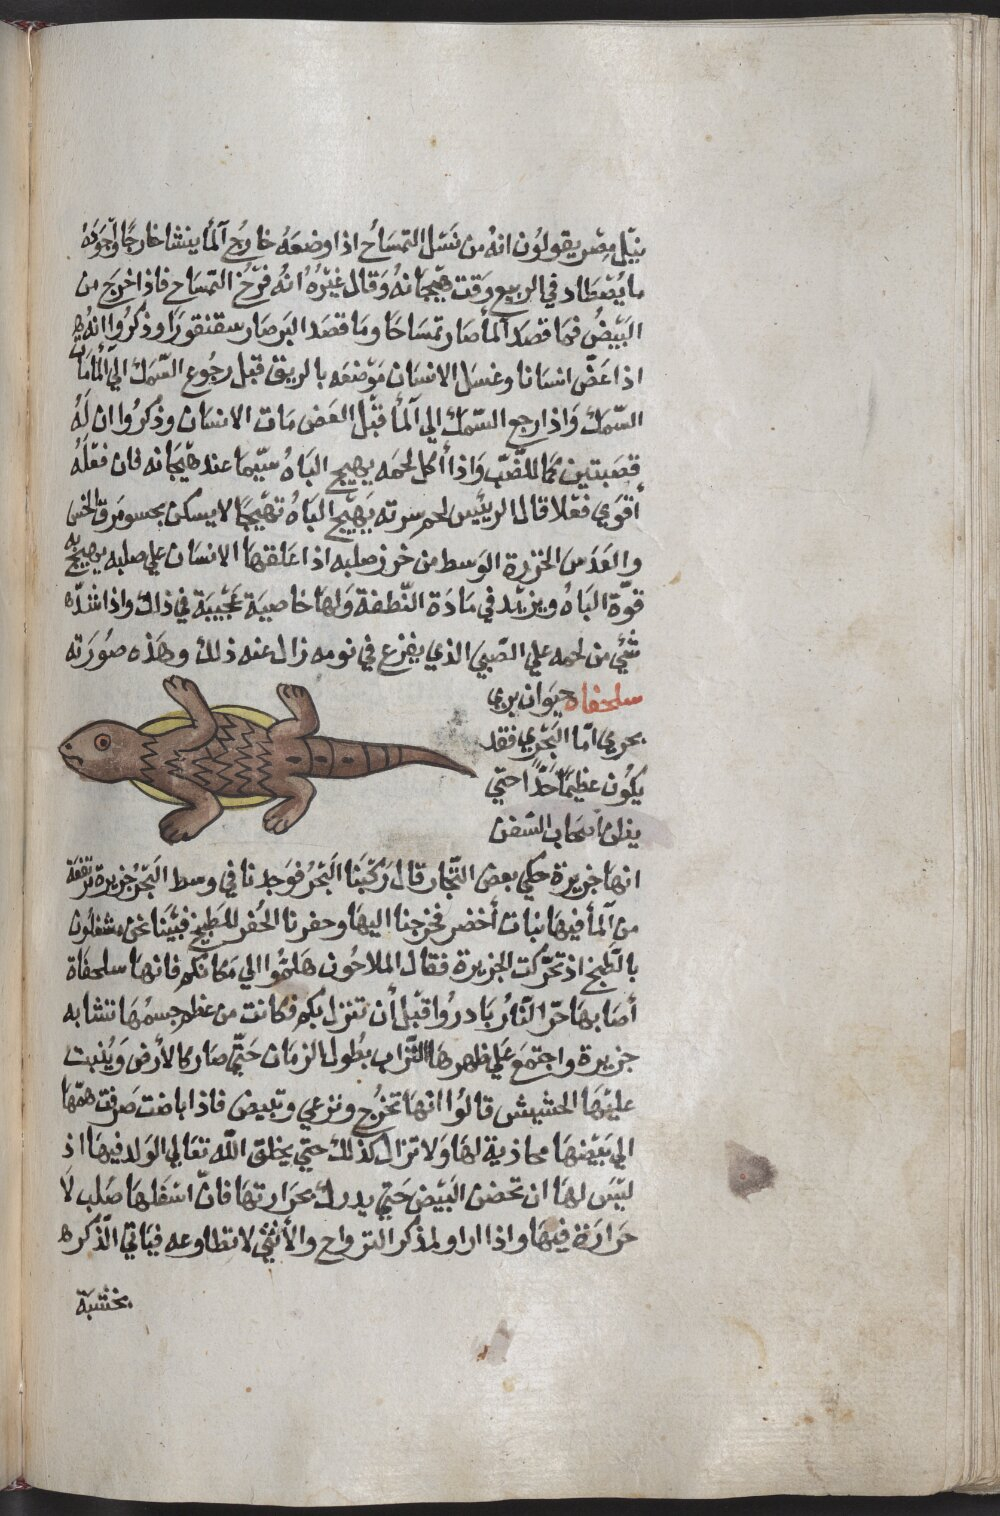 بنيل مصر يقولون انهُ من نَسَل التمسَاح اذا وضعَهُ خارج آلمأ ينشا خارجًا وأجوَدَهُ
ما يُصْطَاد في الربيع وَقت هيجانهُ وَقال غيرُهُ انهُ فرْخ التمسَاح فاذا خرجَ من
البَيْضُ فما قصدَ آلمأ صار تمسَاحًا وما قصَد البَر صَار سقنقورًا وذكرُوا انهُ
اذا عَضّ انسَانا وغسَل الانسَان مَوْضعَه بالريق قبل رجُوع السّمك الي آلمأ مَات
السّمك وَاذا رجع السّمك الي آلمأ قبْل العَض مَات الانسَان وذكرُوا ان لَهُ
قصَبتين كما للضّبّ وَاذا أكل لحمَه يهيج البَاهُ سيّما عند هيَجَانه فان فعْلَهُ
أقوي فعْلا قال الريئيس لحم سرته يَهيّج البَاهُ تهْيجًا لا يسكن بحسو مَرق الخس
والعَدَس الخرزة الوَسط من خرز صلبه اذا عَلقهَا الانسَان علي صلبه يهيج به
قوّة البَاهُ ويزيْد في مَادَة النّطفة وَلهَا خاصيَة عَجْيبَة في ذلك واذا شدّ
شئي من لحمه علي الصّبي الذي يفزع في نومه زال عنه ذلك وهَذه صُورَته
سلحفاه حيَوان بري
بحري امّا البَحْري فقد
يكُون عظيمًا جدًا حتي
يظن اصحَاب السّفن
انها جزيرة حكي بعض التّجار قال رَكبَنا البَحْرُ فوَجدنا في وسط البَحْر جزيرة مرتفعَة
من آلمأ فيهَا نبَات أخضر فخرجنا اليهَا وحفرنا الحُفر للطبيخ فبَيْنَا نحن مشغلون
بالطبخ اذ تحرّكت الجزيرة فقال الملاحُون هَلمُّوا الي مَكانكم فانهَا سلحفَاة
أصَابهَا حَرّ النّارُ بَادرُوا قبْل أن تنزل بكم فكانت من عظم جسمُهَا تشابه
جزيرة واجتمَعَ عَلي ظهرهَا التّراب بطُول الزمَان حَتّي صَار كالأرض وَيُنبت
عليْهَا الحشيش قالوُا انهَا تخرُج وترعي وتبيض فاذا باضت صَرفت همّهَا
الي بَيْضهَا محاذية لهَا وَلا تزال كذلك حتي يخلق الله تعَالي الوَلد فيهَا اذ
ليْسَ لهَا ان تحضن البَيْض حَتي يدرك بحرَارتهَا فانّ اسْفلهَا صَلب لا
حَرارَة فيهَا واذا اراد الذكر التزواج والأنثي لا تطاوعه فيَاتي الذّكر
بخشبَة